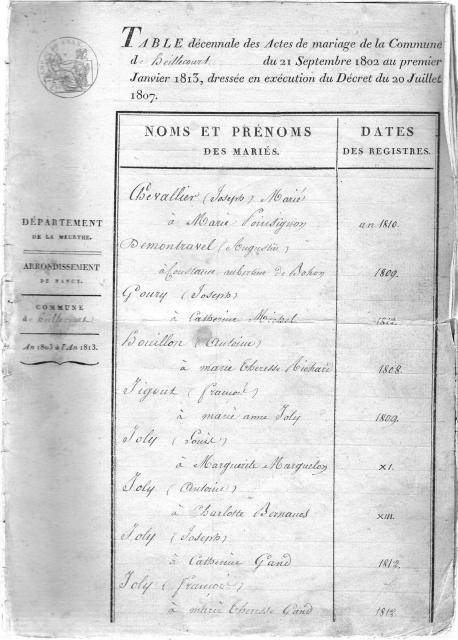 TABLE décennale des Actes de mariage de la Commune
d du 21 Septembre 1802 au premier
Janvier 1813, dressée en exécution du Décret du 20 Juillet
1807.
DÉPARTEMENT
DE LA MEURTHE.
ARRONDISSEMENT
DE NANCY.
COMMUNE
de
An 1803 à l'An 1813.
NOMS ET PRÉNOMS
DES MARIÉS.
DATES
DES REGISTRES.
Chevallier (Joseph) Marié
à Marie Poinsignon an 1810.
Demontravel (Augustin)
à Constance aubertine de Bohon 1809.
Goury (Joseph)
à Catherine Michel 1812.
Bouillon (Antoine)
à marie theresse Richard 1808.
Tigout (françois)
à marie anne Joly 1809.
Joly (Louis)
à Marguerite Marguelon XI.
Joly (Antoine)
à Charlotte XIII.
Joly (Joseph)
à Catherine Gand 1812.
Joly (françois)
à marie theresse Gand 1812